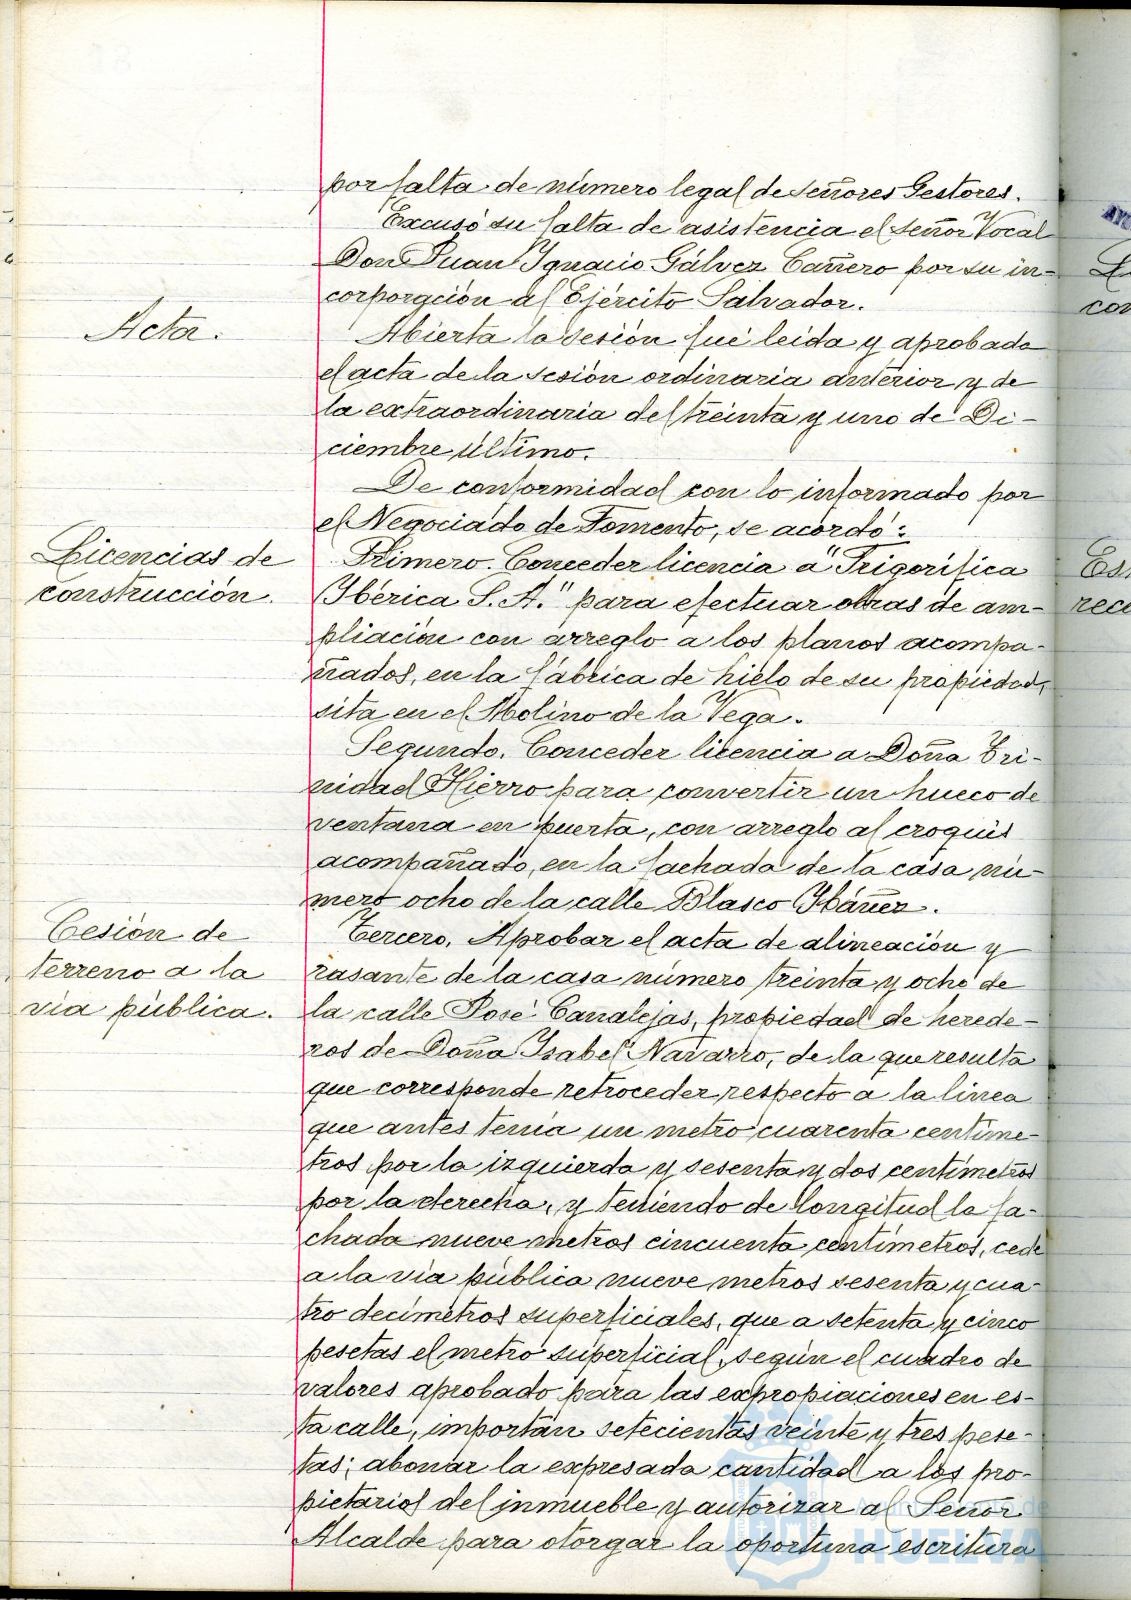 por falta de número legal de señores Gestores.
Excusó su falta de asistencia el señor Vocal
Don Juan Ygnacio Gálvez Cañero por su in-
corporación al Ejército Salvador.
Acta.
Abierta la sesión fué leida y aprobada
el acta de la sesión ordinaria anterior y de
la extraordinaria del treinta y uno de Di-
ciembre último.
De conformidad con lo informado por
el Negociado de Fomento, se acordó:
Licencias de
construcción.
Primero. Conceder licencia a "Frigorífica
Ybérica S. A." para efectuar obras de am-
pliación con arreglo a los planos acompa-
ñados, en la fábrica de hielo de su propiedad,
sita en el Molino de la Vega.
Segundo. Conceder licencia a Doña Tri-
nidad Hierro para convertir un hueco de
ventana en puerta, con arreglo al croquis
acompañado, en la fachada de la casa nú-
mero ocho de la calle Blasco Ybáñez.
Cesión de
terreno a la
vía pública.
Tercero. Aprobar el acta de alineación y
rasante de la casa número treinta y ocho de
la calle José Canalejas, propiedad de herede-
ros de Doña Isabel Navarro, de la que resulta
que corresponde retroceder respecto a la linea
que antes tenía un metro cuarenta centíme-
tros por la izquierda y sesenta y dos centímetros
por la derecha, y teniendo de longitud la fa-
chada nueve metros cincuenta centímetros, cede
a la vía pública nueve metros sesenta y cua-
tro decímetros superficiales, que a setenta y cinco
pesetas el metro superficial, según el cuadro de
valores aprobado para las expropiaciones en es-
ta calle, importan setecientas veinte y tres pese-
tas; abonar la expresada cantidad a los pro-
pietarios del inmueble y autorizar al Señor
Alcalde para otorgar la oportuna escritura
Ayuntamiento de
HUELVA